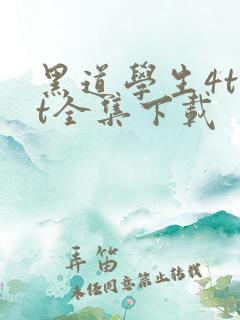 黑道學生4t
t全集下載
弄笛
未经同意禁止转载